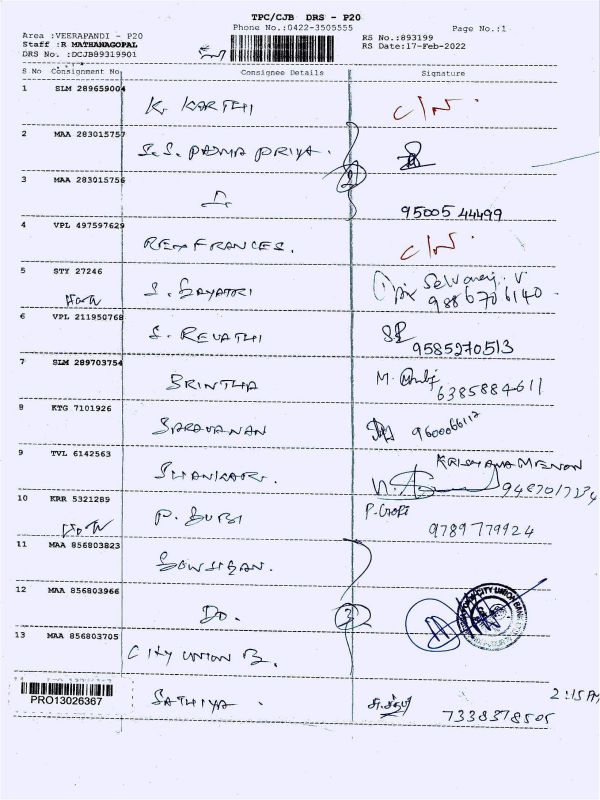 TPC/CJB DRS - P20
Phone No.:0422-3505555 Page No.:1
Area :VEERAPANDI - P20
Staff :R MATHANAGOPAL
DRS No. :DCJB89319901
RS No.:893199
RS Date:17-Feb-2022
S No Consignment No Consignee Details Signature
1 SLM 289659004 K. KARTHI C/N.
2 MAA 283015757 S.S. PADMA PRIYA.
3 MAA 283015756 95005 44499
2
4 VPL 497597629 REX FRANCES. C/N.
5 STY 27246 S. GAYATRI Selvaraj. V
9886706140
6 VPL 211950768 S. REVATHI
9585270513
7 SLM 289703754 BRINTHA M.
6385884611
8 KTG 7101926 SARAVANAN 9600066112
9 TVL 6142563 SHANKARI. KRISHNA MENON
10 KRR 5321289 P. P. GOPI
9789779924
11 MAA 856803823
12 MAA 856803966 DO. 3
CITY UNION BANK
13 MAA 856803705 CITY UNION B.
PRO13026367 SATHIYA. 2:15 PM
7338378505